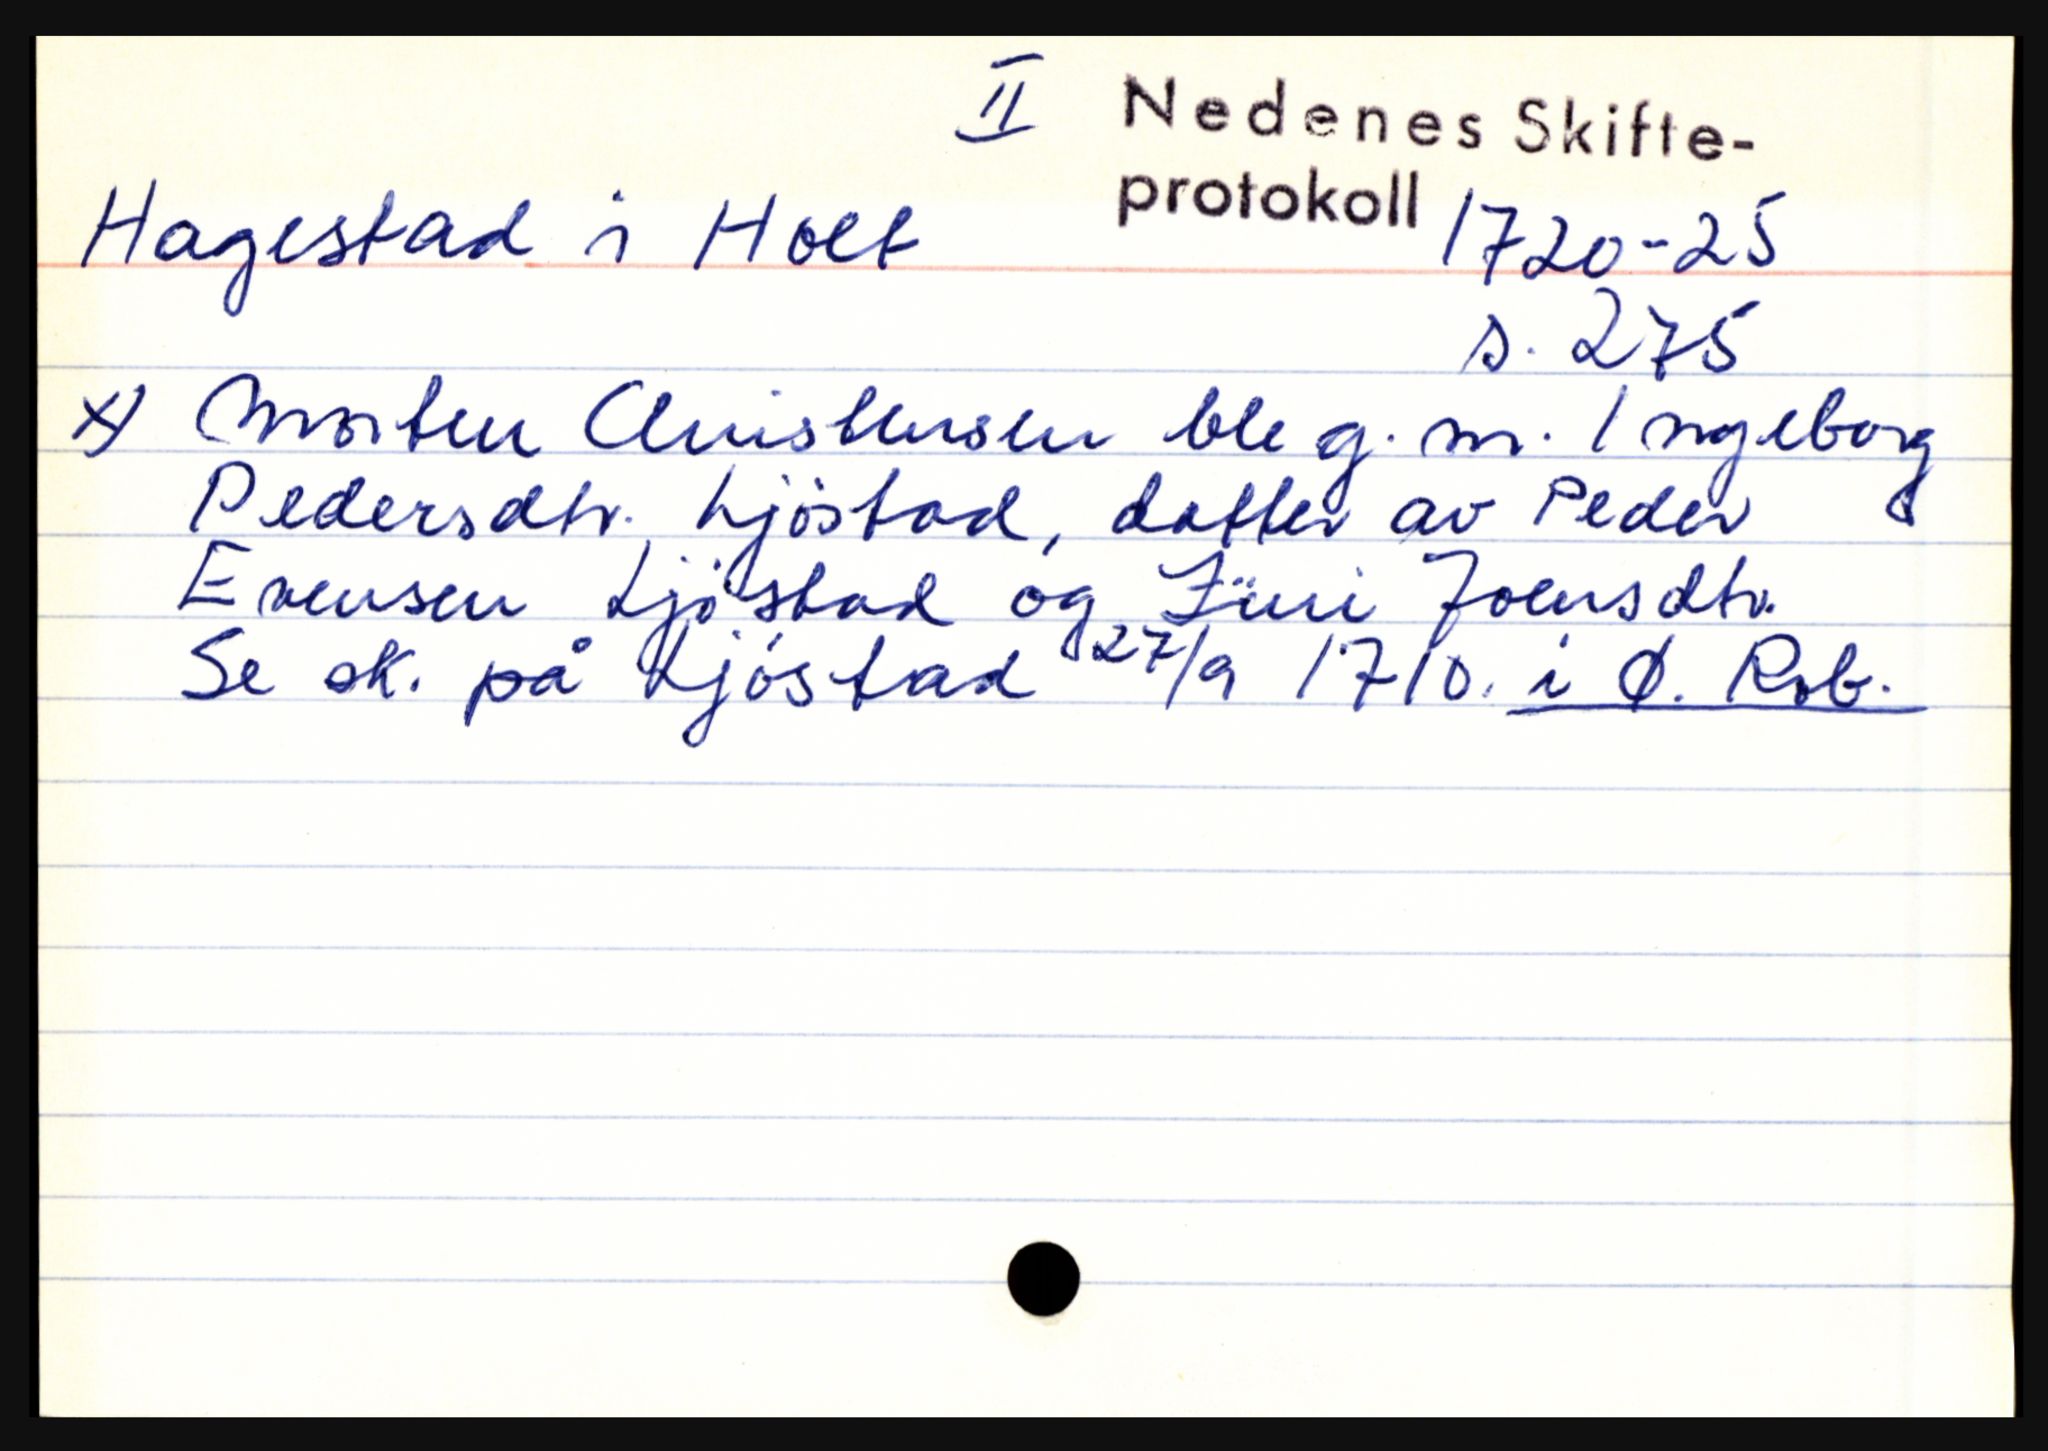 II Nedenes Skifte-
protokoll
Hagestad i Holt 1720-25
s. 275
x) Morten Christensen ble g. m. Ingeborg
Pedersdtr. Ljöstad, datter av Peder
Evensen Ljöstad og Züri Joensdtr.
Se sk. på Ljöstad 27/9 1710. i Ø. Rob.